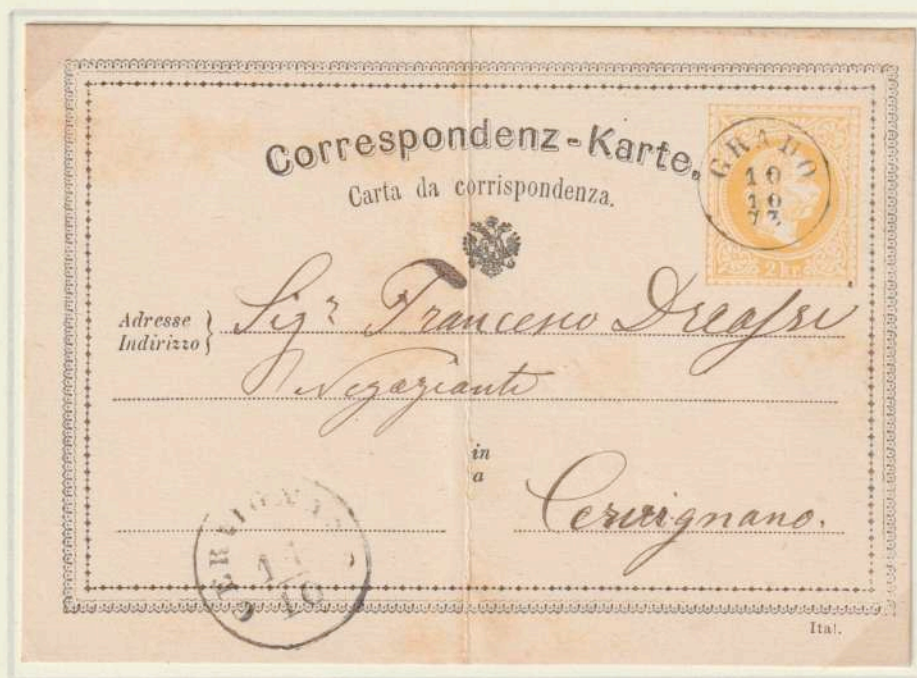 Correspondenz-Karte.
Carta da corrispondenza.
GRADO
10
10
73
2 kr.
Adresse
Indirizzo
Sigr Francesco Dreossi
Negoziante
in
a
Cervignano.
CERVIGNANO
11
10
Ital.